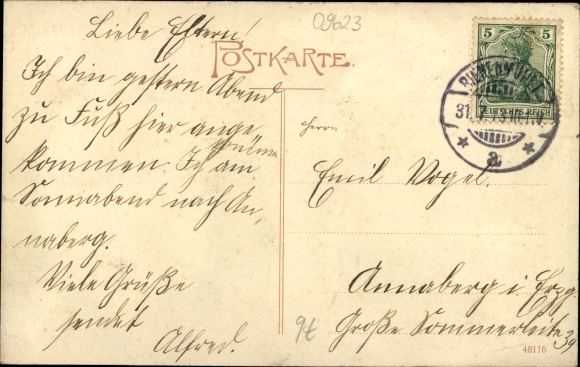 09623
Liebe Eltern!
POSTKARTE.
Ich bin gestern Abend
zu Fuß hier ange
kommen. Ich
Sonnabend nach An,
naberg.
Viele Grüße
sendet
Alfred.
5 5
DEUTSCHES REICH
31.7.
2.
Herrn
Emil Vogel.
Annaberg i. Erzg
Große Sommerleite 39
9t
48116